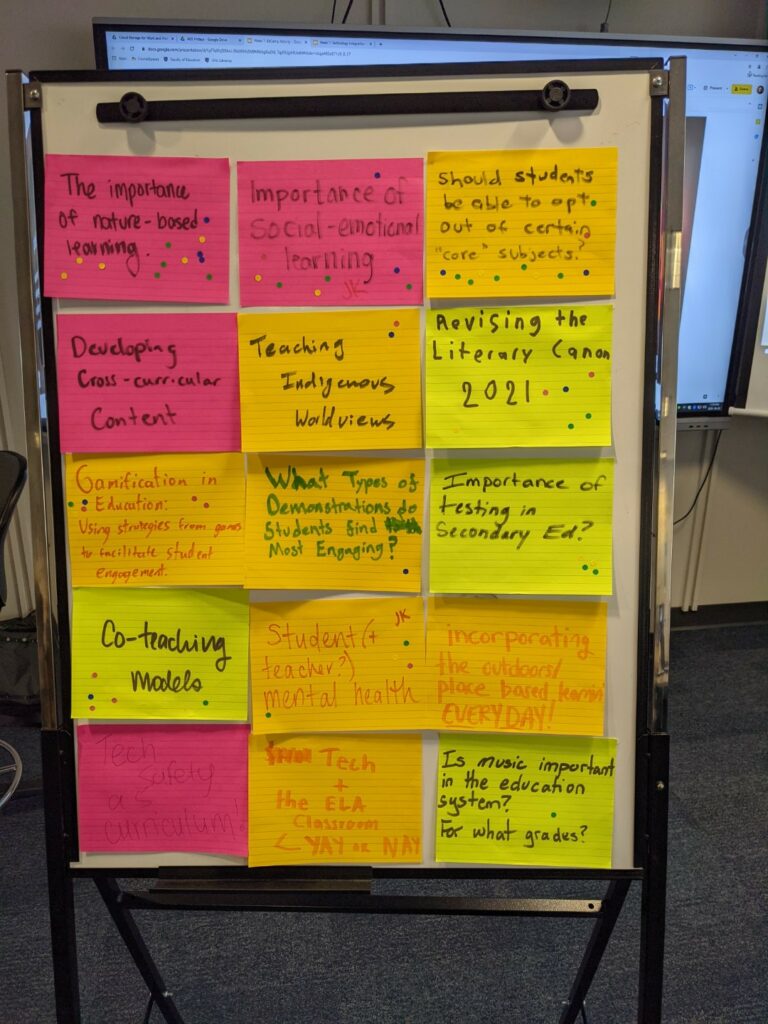 The importance
of nature-based
learning.
Importance of
social-emotional
learning
JK
Should students
be able to opt
out of certain
"core" subjects?
Developing
Cross-curricular
Content
Teaching
Indigenous
Worldviews
Revising the
Literary Canon
2021
Gamification in
Education:
Using strategies from games
to facilitate student
engagement.
What Types of
Demonstrations do
Students find
Most Engaging?
Importance of
testing in
Secondary Ed?
Co-teaching
Models
JK
Student (+
teacher?)
mental health
incorporating
the outdoors/
place based learnin'
EVERYDAY!
Tech
Safety
as
curriculum!
Tech
+
the ELA
Classroom
YAY or NAY
Is music important
in the education
system?
For what grades?